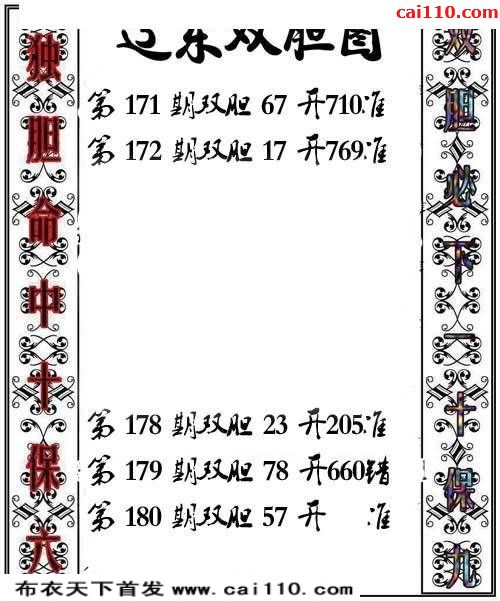 cai110.com
辽东双胆图
第 171 期双胆 67 开710准
第 172 期双胆 17 开769准
第 178 期双胆 23 开205准
第 179 期双胆 78 开660错
第 180 期双胆 57 开 准
独胆命中十保六
双胆必下一十保九
布衣天下首发 www.cai110.com